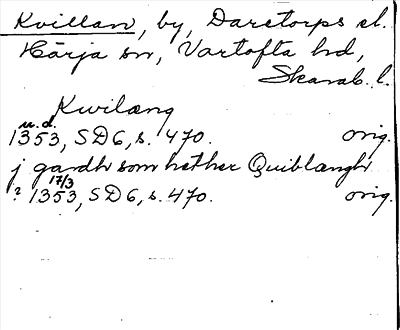 Kvillan, by, Daretorps sl.
Härja sn, Vartofta hd,
Skarab. l.
Kwilæng
u.d.
1353, SD6, s. 470. orig.
j gardh som hether Quiblængh
17/3
? 1353, SD6, s. 470. orig.